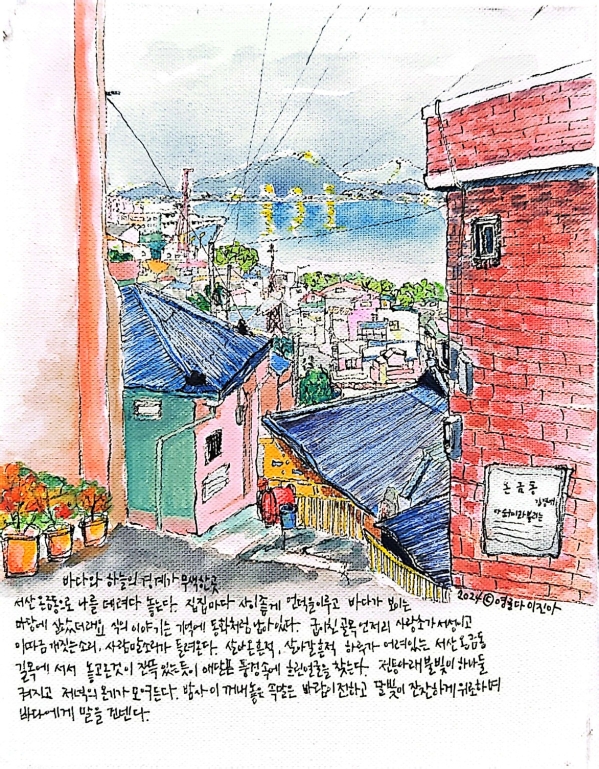 온금동
바다와 하늘의 경계가 무색한곳
2024 ⓒ
서산온금동으로 나를 데려다 놓는다. 집집마다 사이좋게 언덕을이루고 바다가 보이는
마당에 살았더래요 식의 이야기는 기억에 동화처럼 남아있다. 굽이친골목 언저리 사랑초가 서성이고
이따금 개짖는소리, 사람사는소리가 들려온다. 살아온흔적, 살아갈흔적 하루가 어려있는 서산온금동
길목에 서서 놓고온것이 잔뜩 있는듯이 애닯은 풍경속에 흐린얼굴을 찾는다. 전등아래불빛이 하나둘
켜지고 저녁의 온기가 모여든다. 밤사이 꺼내놓은 속닮은 바람이전하고 달빛이 잔잔하게 위로하며
바다에게 말을 건넨다.